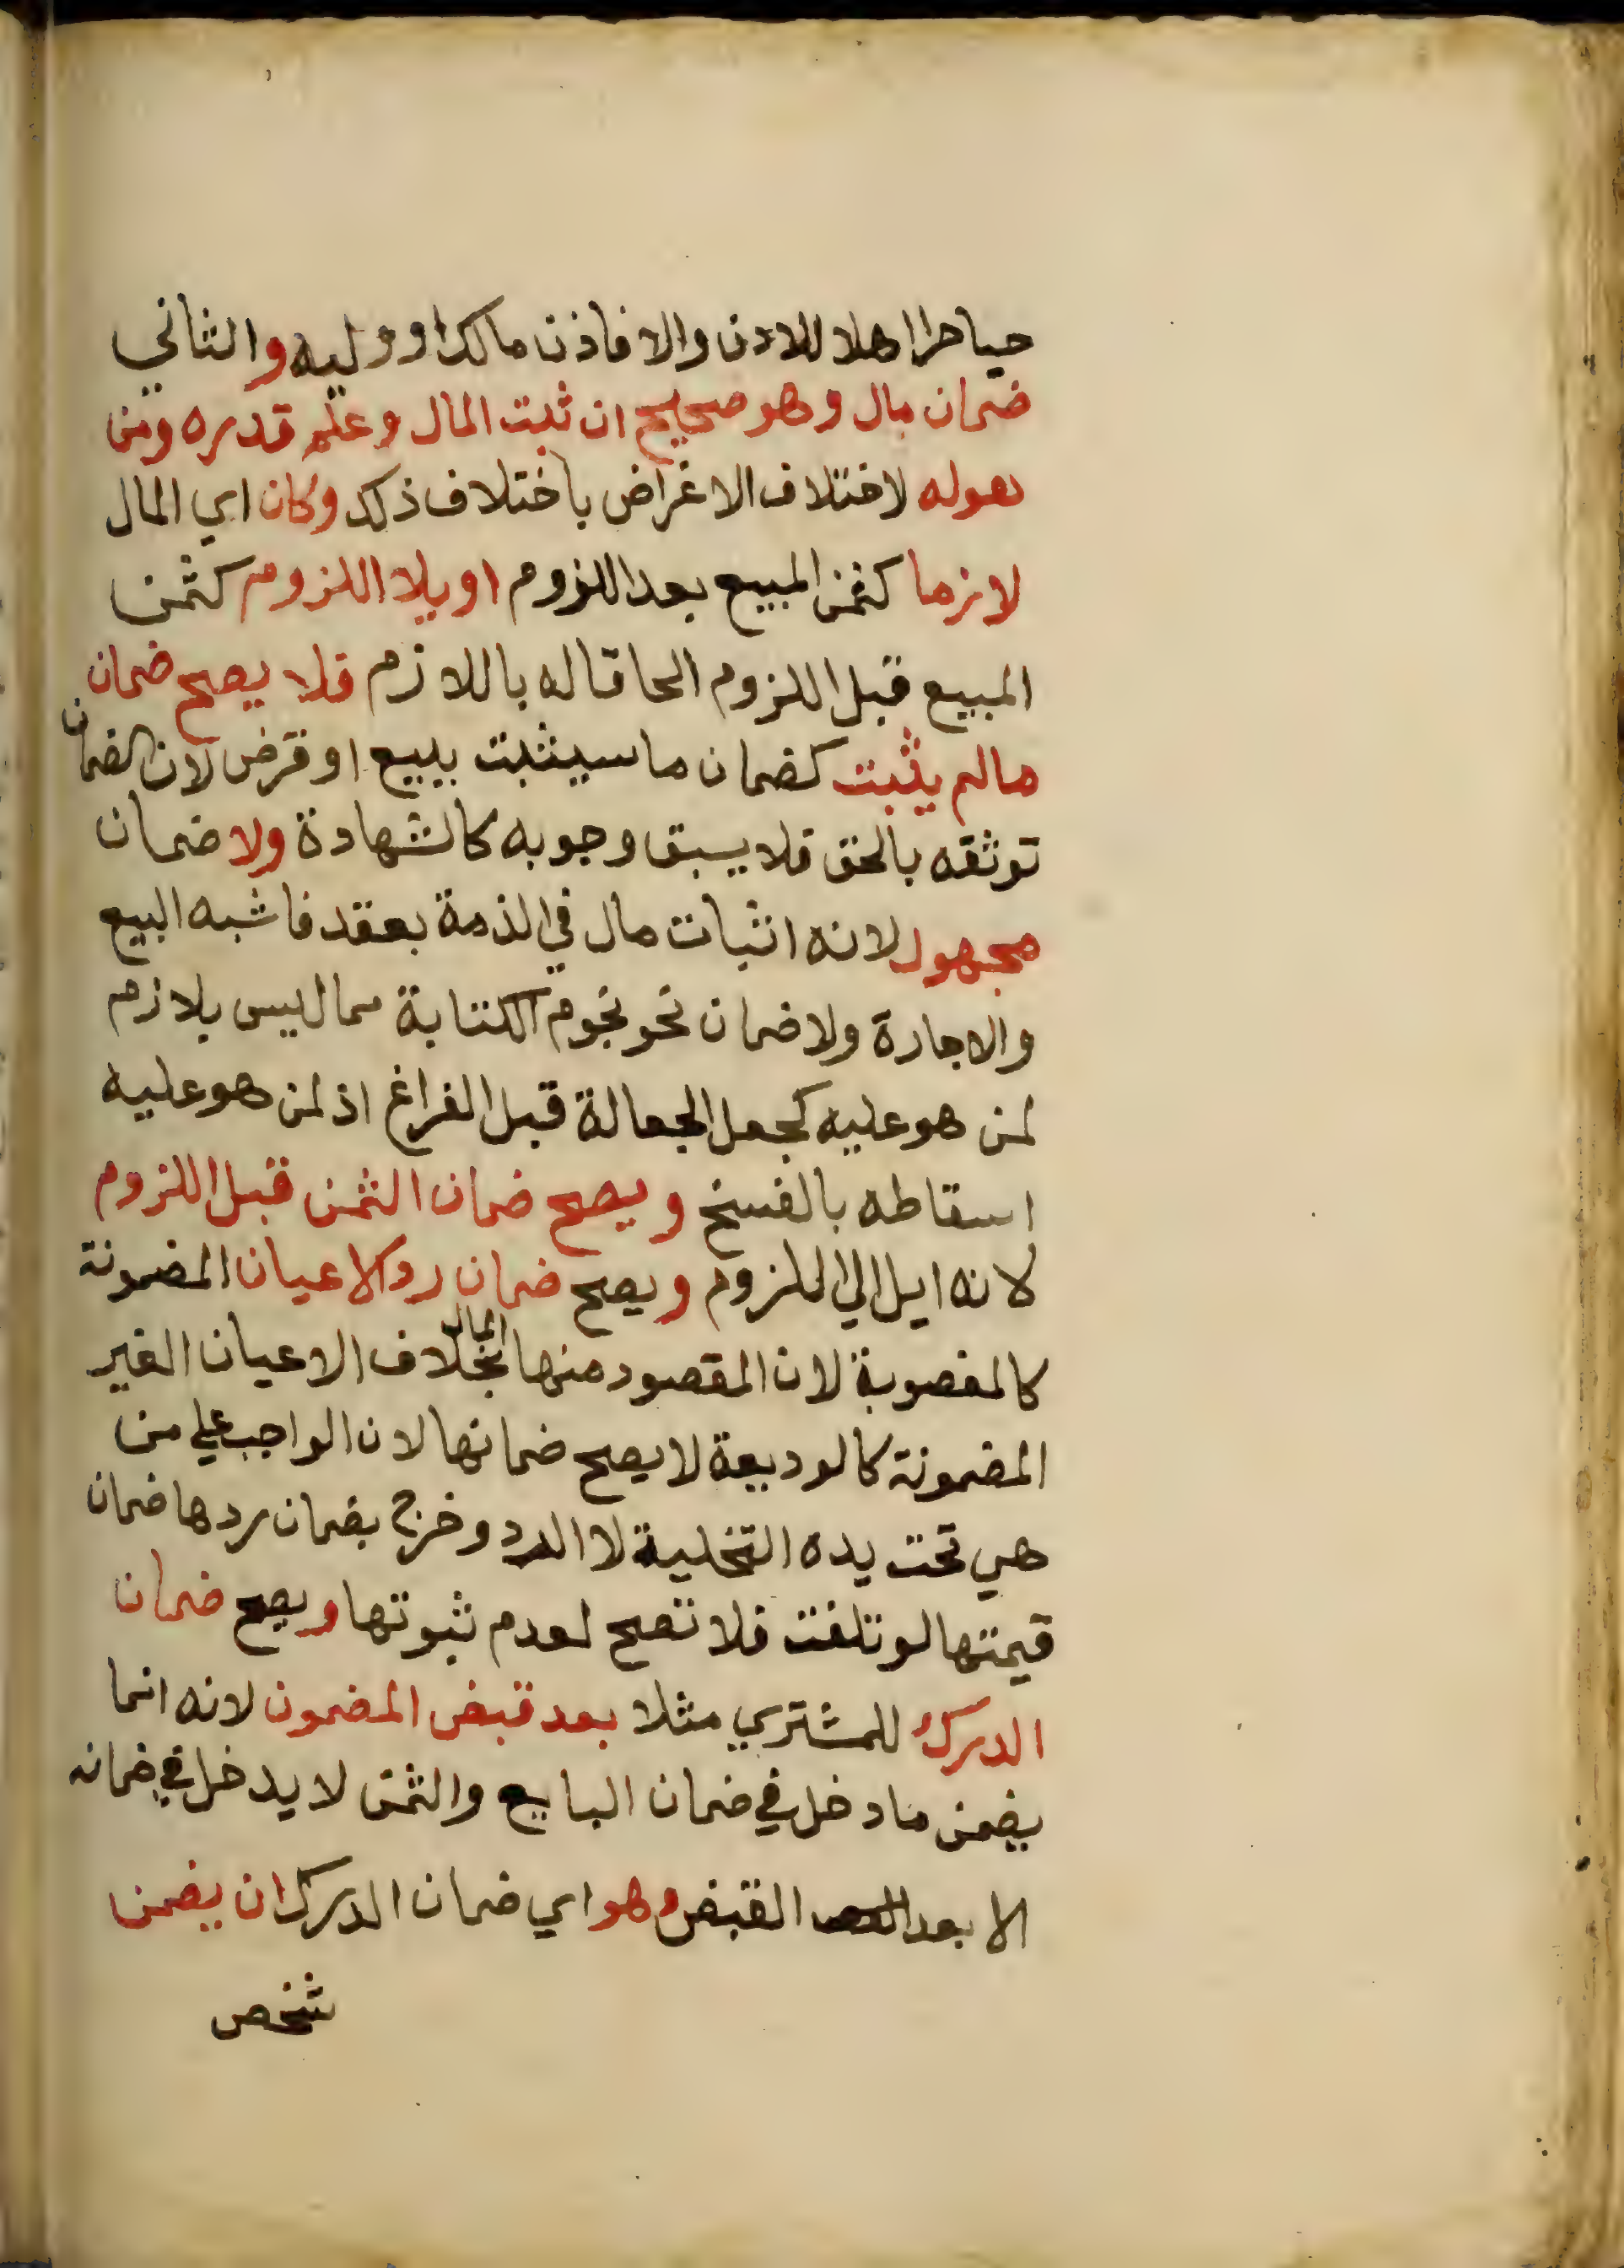 حيا حرا اهلا للاذن والا فاذن مالكه او وليه والثاني
ضمان مال وهو صحيح ان ثبت المال وعلم قدره ومن
هوله لاختلاف الاغراض باختلاف ذلك وكان اي المال
لازما كثمن المبيع بعد اللزوم او يلا اللزوم كثمن
المبيع قبل اللزوم الحاقا له باللازم فلا يصح ضمان
مالم يثبت كضمان ما سيثبت ببيع او قرض لان الضمان
توثقه بالحق فلا يسبق وجوبه كالشهادة ولا ضمان
مجهول لانه اثبات مال في الذمة بعقد فاشبه البيع
والاجارة ولا ضمان نحو نجوم الكتابة مما ليس بلازم
لمن هو عليه كجعل الجعالة قبل الفراغ اذ لمن هو عليه
اسقاطه بالفسخ ويصح ضمان الثمن قبل اللزوم
لانه ايل الي اللزوم ويصح ضمان رد الاعيان المضمونة
كالمغصوبة لان المقصود منها المال بخلاف الاعيان الغير
المضمونة كالوديعة لا يصح ضمانها لان الواجب علي من
هي تحت يده التخلية لا الرد وخرج بضمان ردها ضمان
قيمتها لو تلفت فلا تصح لعدم ثبوتها ويصح ضمان
الدرك للمشتري مثلا بعد قبض المضمون لانه انما
يضمن ما دخل في ضمان البايع والثمن لا يدخل في ضمانه
الا بعد القبض وهو اي ضمان الدرك ان يضمن
شخص